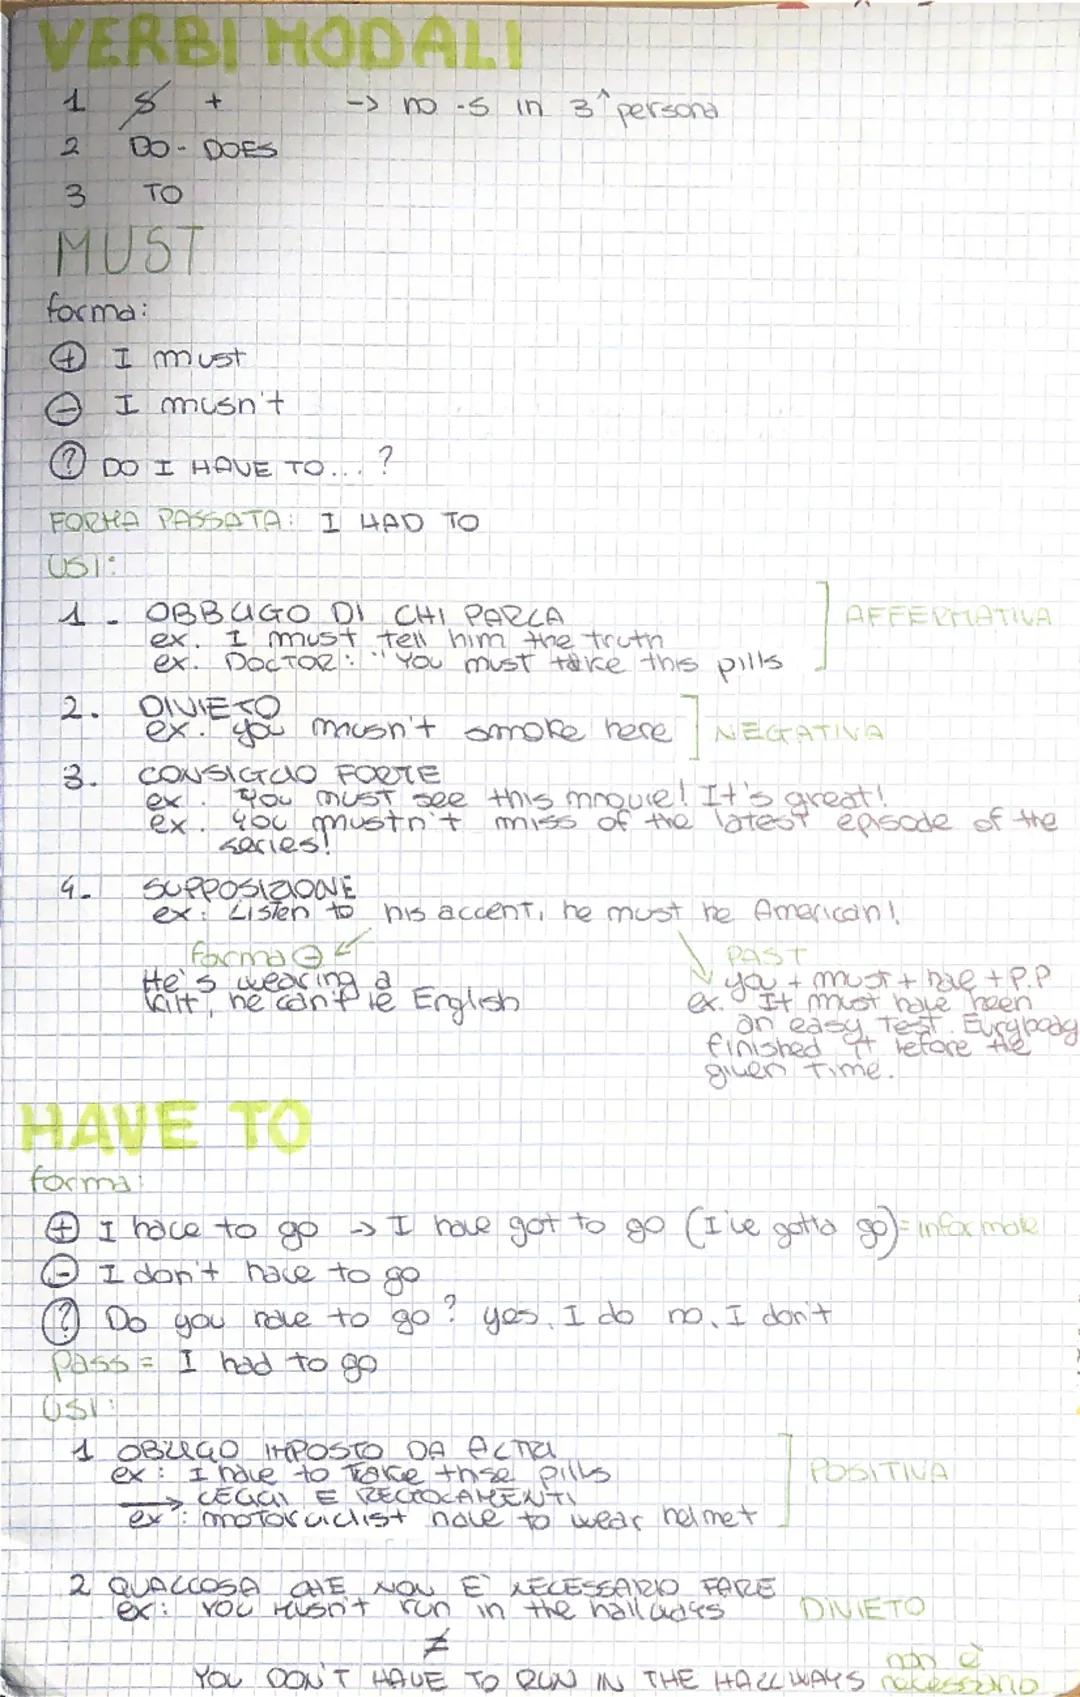 VERBI MODALI
1 S + -> no -s in 3^ persona
2 DO - DOES
3 TO
MUST
forma:
+ I must
- I musn't
? DO I HAVE TO... ?
FORMA PASSATA: I HAD TO
USI:
1 - OBBLIGO DI CHI PARLA
ex. I must tell him the truth
ex. DOCTOR: "You must take this pills
AFFERMATIVA
2. DIVIETO
ex. you musn't smoke here
NEGATIVA
3. CONSIGLIO FORTE
ex. You must see this movie! It's great!
ex. You mustn't miss of the latest episode of the
series!
4. SUPPOSIZIONE
ex: Listen to his accent, he must be American!
forma -
He's wearing a
kilt, he can't be English
PAST
you + must + have + P.P
ex. It must have been
an easy test. Everybody
finished it before the
given time.
HAVE TO
forma:
+ I have to go -> I have got to go (I've gotta go) = informale
- I don't have to go
? Do you have to go? yes, I do no, I don't
pass = I had to go
USI:
1 OBBLIGO IMPOSTO DA ALTRI
ex: I have to take these pills
-> LEGGI E REGOLAMENTI
ex: motorciclist have to wear helmet
POSITIVA
2 QUALCOSA CHE NON E' NECESSARIO FARE
ex: YOU MUSN'T run in the hallways DIVIETO
≠
YOU DON'T HAVE TO RUN IN THE HALLWAYS non è
necessario